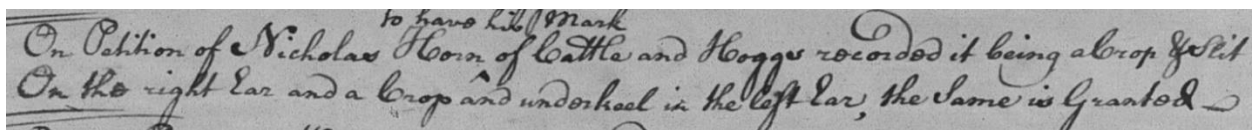 to have his Mark
On Petition of Nicholas Horn of Cattle and Hoggs recorded it being a Crop & Slit
On the right Ear and a Crop and underkeel in the left Ear, the Same is Granted